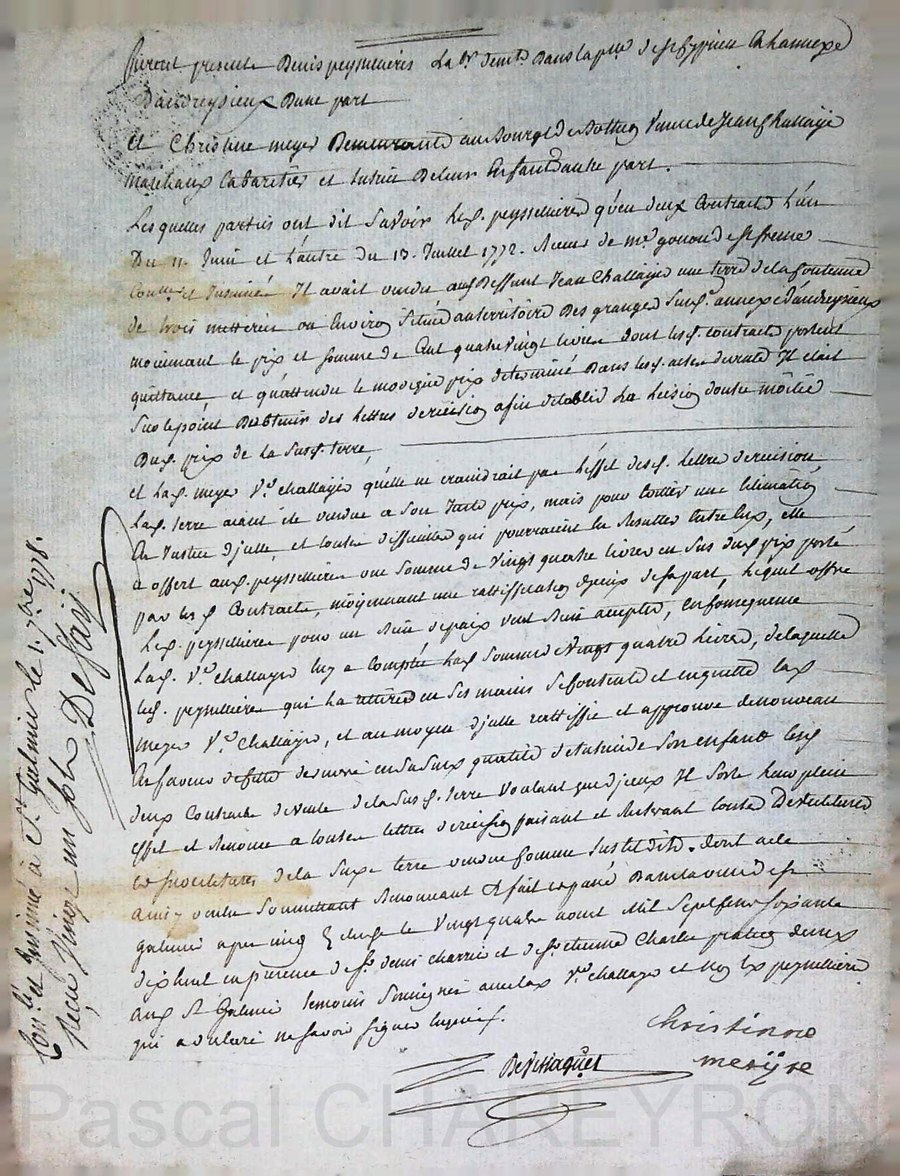 furent presents Denis peyssellieres Lab.r demt. Dans la p.sse de st Cyprien Et annexe
D'andreysieux Dune part
Et Christine meyer Demeurante au Bourg de Veuve de Jean Challaye
Marchand Cabaretier et tutrice De leur Enfant D'autre part.
Lesquelles parties ont dit savoir led. peysselliere qu'en deux Contracts L'un
Du 11. Juin et L'autre du 13. Juillet 1772. Recus de me gonon
et Insinués Il avait vendu aud Deffunt Jean Challaye une terre de la Contenue
de trois metterées ou Environ située au territoire des granges sur lad. annexe d'andreysieux
moiennant le prix et somme de Cent quatre vingt livres dont lesd. contracts portent
quittance, et qu'attendu le modique prix determiné Dans lesd. actes de vente Il était
Sur le point D'obtenir des lettres de rescision afin d'etablir La lesion d'outre moitié
Dud. prix de la susd. terre,
et Lad. meyer V.e Challaye qu'elle ne craindrait pas L'effet desd. lettres de rescision
Lad. terre aiant été vendue a son Juste prix, mais pour Eviter une Estimation
En Justice d'jcelle, et toutes difficultés qui pourraient En Resulter Entre Eux, elle
a offert aud. peysselliere une Somme de vingt quatre livres en sus dud. prix porté
par lesd Contracts, moyennant une rattiffication d'jceux de sa part, Lequel offre
Led. peysselliere pour un Bien de paix veut Bien accepter, en Consequence
Lad. V.e Challaye luy a Comptée Lad. Somme de Vingt quatre Livres, de laquelle
led. peysselliere qui La retirée en ses mains se Contente et en quitte lad
meyer V.e Challaye, et au moyen d'jcelle rattiffie et approuve de nouveau
En faveur de en sa susd qualité de tutrice de son enfant lesd
deux Contracts de vente de la susd. terre Voulant que d'jceux Il sorte leur plein
effet et Renonce a toutes lettres de rescision
de la susd. terre vendue Comme sus Est dit. dont acte
ainsy voulu Soumettant Renonçant fait et passé
galmier apres midy Ce le Vingt quatre aout Mil Sept Cens soixante
dix huit en presence de sr. denis charrin et de sr. etienne Charle praticien
aud St Galmier temoins Soussignés avec lad V.e challaye et non led peysselliere
qui a declaré ne savoir signer Enquis.
christinne
meÿre
Devissaguet
Con.lé et Insinué à St Galmier le 1. 7bre 1778.
Reçu Vingt un sols Defay
Pascal CHAREYRON